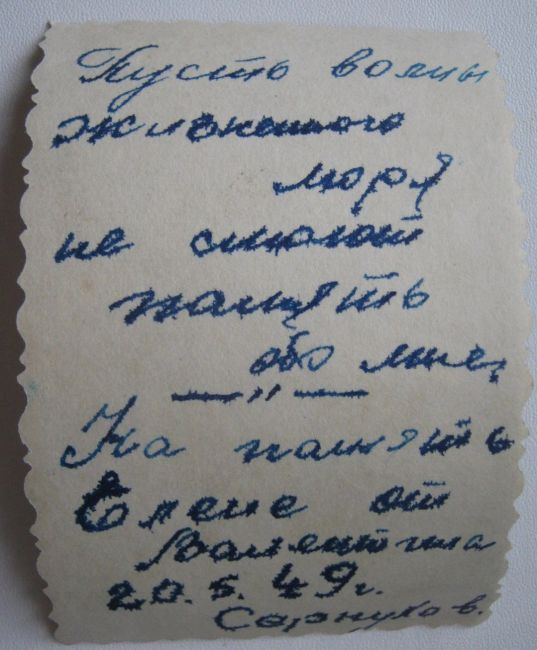 Пусть волны
жизненного
моря
не смоют
память
обо мне.
— „ —
На память
Елене от
Валентина
20.5.49г.